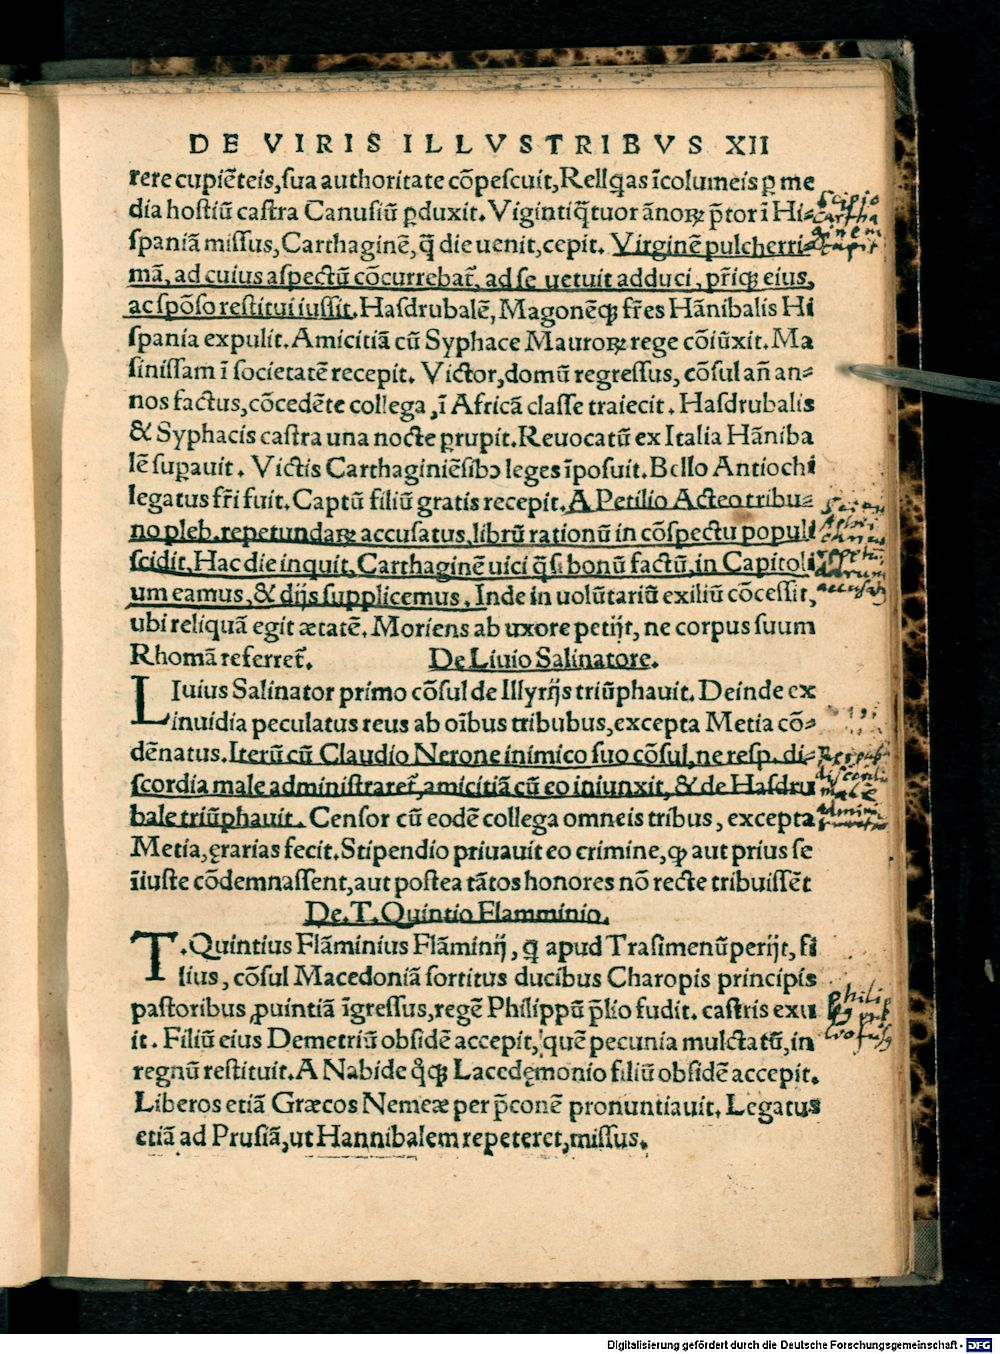 DE VIRIS ILLVSTRIBVS XII
rere cupiẽteis, sua authoritate cõpescuit, Rellq̃as ĩcolumeis ꝑ me
dia hostiũ castra Canusiũ ꝑduxit. Vigintiq̃tuor ãnoꝝ p̃tor ĩ Hi⸗
spaniã missus, Carthaginẽ, q̃ die uenit, cepit. Virginẽ pulcherri⸗
mã, ad cuius aspectũ cõcurrebat᷑, ad se uetuit adduci, pr̃iqꝫ eius,
ac spõso restitui iussit. Hasdrubalẽ, Magonẽqꝫ fr̃es Hãnibalis Hi
spania expulit. Amicitiã cũ Syphace Mauroꝝ rege cõiũxit. Ma
sinissam ĩ societatẽ recepit. Victor, domũ regressus, cõsul añ an⸗
nos factus, cõcedẽte collega, ĩ Africã classe traiecit. Hasdrubalis
& Syphacis castra una nocte ꝑrupit. Reuocatũ ex Italia Hãniba
lẽ suꝑauit. Victis Carthaginiẽsibꝰ leges ĩposuit. Bello Antiochi
legatus fr̃i fuit. Captũ filiũ gratis recepit. A Petilio Acteo tribu⸗
no pleb. repetundaꝝ accusatus, librũ rationũ in cõspectu populi
scidit, Hac die inquit, Carthaginẽ uici q̃s̃ bonũ factũ, in Capitoli
um eamus, & dijs supplicemus. Inde in uolũtariũ exiliũ cõcessit,
ubi reliquã egit ætatẽ. Moriens ab uxore petijt, ne corpus suum
Rhomã referret᷑. De Liuio Salinatore.
LIuius Salinator primo cõsul de Illyrijs triũphauit. Deinde ex
inuidia peculatus reus ab oĩbus tribubus, excepta Metia cõ⸗
dẽnatus. Iterũ cũ Claudio Nerone inimico suo cõsul, ne resp. di⸗
scordia male administraret᷑, amicitiã cũ eo iniunxit, & de Hasdru
bale triũphauit. Censor cũ eodẽ collega omneis tribus, excepta
Metia, ęrarias fecit. Stipendio priuauit eo crimine, ꝙ aut prius se
ĩiuste cõdemnassent, aut postea tãtos honores nõ recte tribuissẽt
De. T. Quintio Flamminio.
T. Quintius Flãminius Flãminij, q̃ apud Trasimenũ perijt, fi
lius, cõsul Macedoniã sortitus ducibus Charopis principis
pastoribus, ꝓuintiã ĩgressus, regẽ Philippũ p̃lio fudit. castris exu
it. Filiũ eius Demetriũ obsidẽ accepit, quẽ pecunia mulctatũ, in
regnũ restituit. A Nabide q̊qꝫ Lacedęmonio filiũ obsidẽ accepit.
Liberos etiã Græcos Nemeæ per p̃conẽ pronuntiauit. Legatus
etiã ad Prusiã, ut Hannibalem repeteret, missus.
Scipio
Cartha
ginem
capit
accusatꝰ
Respub
discordia
male
Philip
Digitalisierung gefördert durch die Deutsche Forschungsgemeinschaft - DFG